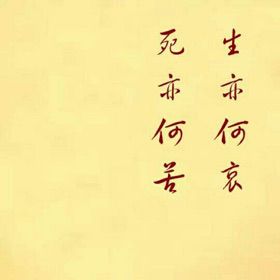 生亦何哀
死亦何苦